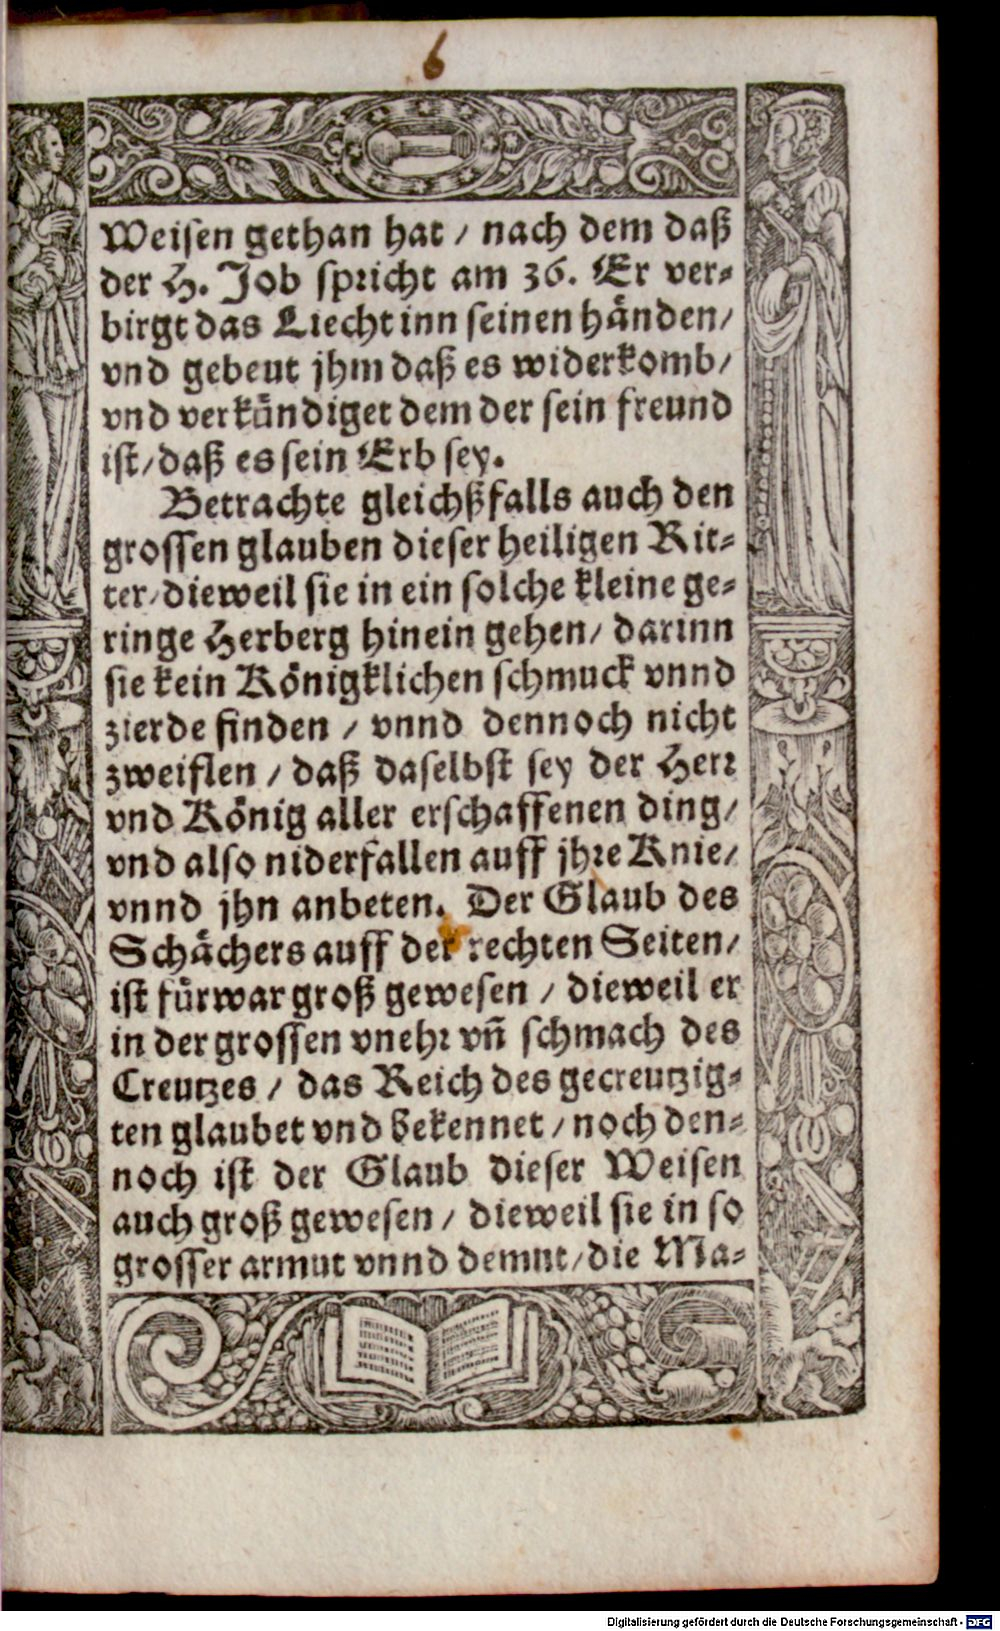 6
Weisen gethan hat / nach dem daß
der H. Job spricht am 36. Er ver-
birgt das Liecht inn seinen händen/
vnd gebeut jhm daß es widerkomb/
vnd verkündiget dem der sein freund
ist/daß es sein Erb sey.
Betrachte gleichßfalls auch den
grossen glauben dieser heiligen Rit-
ter/dieweil sie in ein solche kleine ge-
ringe Herberg hinein gehen/ darinn
sie kein Königklichen schmuck vnnd
zierde finden / vnnd dennoch nicht
zweiflen / daß daselbst sey der Herr
vnd König aller erschaffenen ding/
vnd also niderfallen auff jhre Knie/
vnnd jhn anbeten. Der Glaub des
Schächers auff der rechten Seiten/
ist fürwar groß gewesen / dieweil er
in der grossen vnehr vn̄ schmach des
Creutzes / das Reich des gecreutzig-
ten glaubet vnd bekennet / noch den-
noch ist der Glaub dieser Weisen
auch groß gewesen / dieweil sie in so
grosser armut vnnd demut/die Ma-
Digitalisierung gefördert durch die Deutsche Forschungsgemeinschaft - DFG